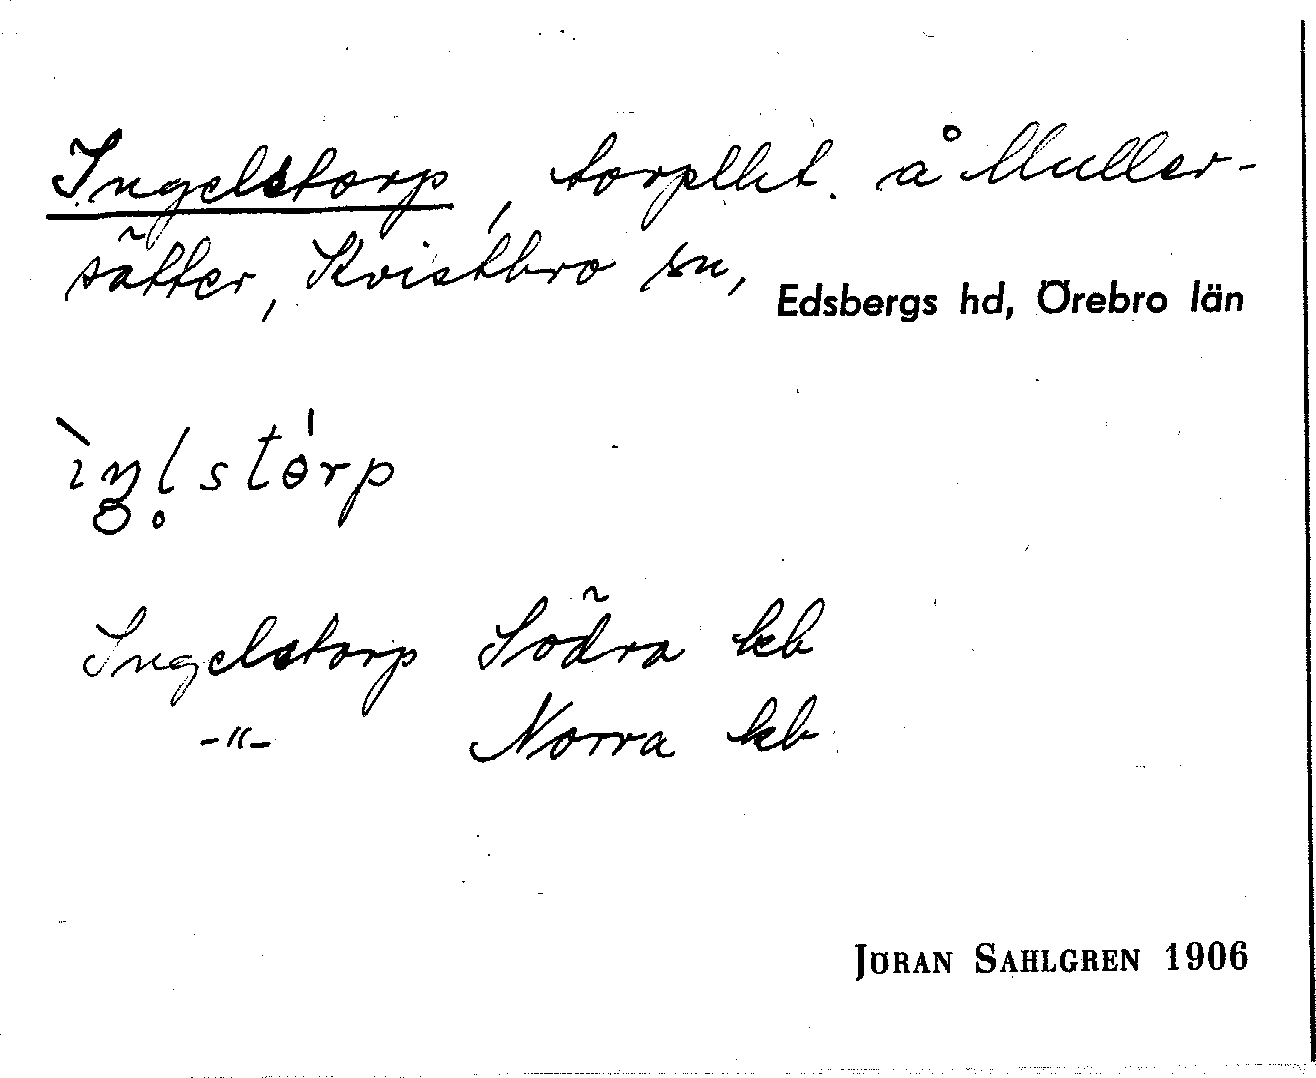 Ingelstorp, torplht. å Muller-
sätter, Kvistbro sn,
Edsbergs hd, Örebro län
ìŋl̥stɵ́rp
Ingelstorp Södra kb
-"- Norra kb
JÖRAN SAHLGREN 1906